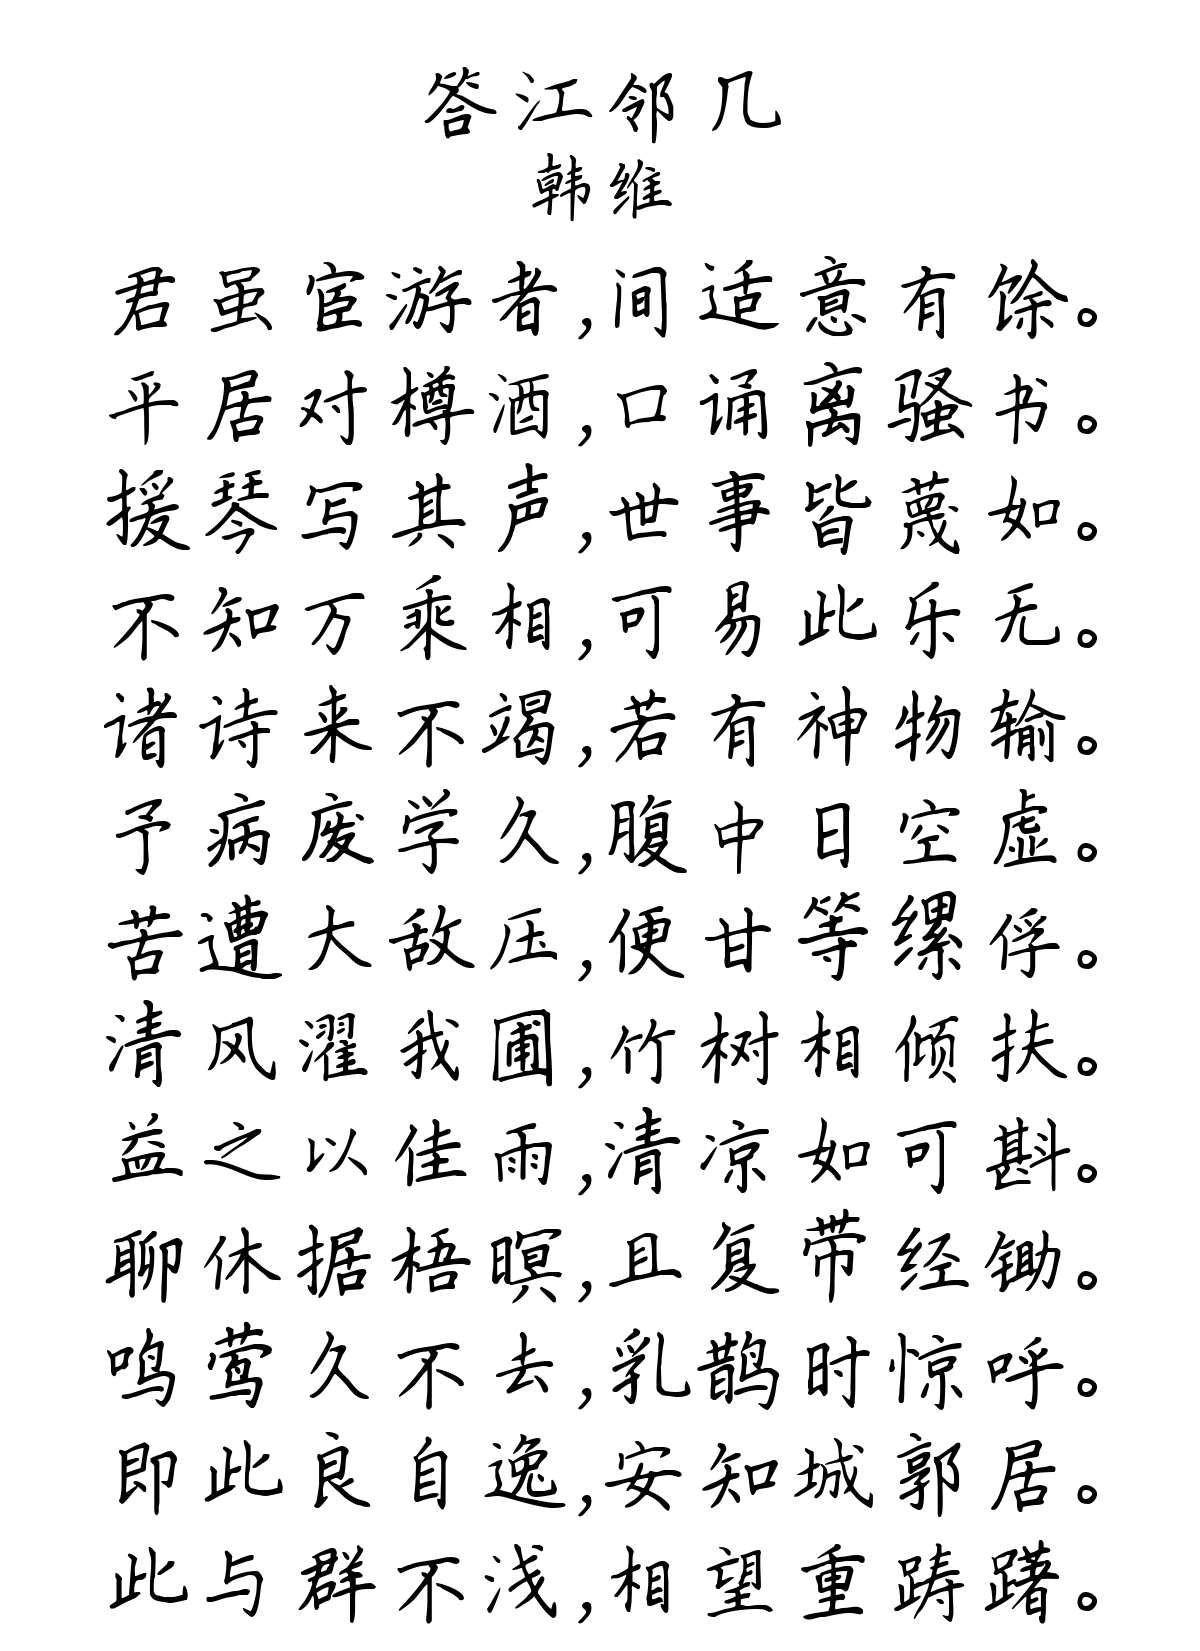 答江邻几
韩维
君虽宦游者,间适意有馀。
平居对樽酒,口诵离骚书。
援琴写其声,世事皆蔑如。
不知万乘相,可易此乐无。
诸诗来不竭,若有神物输。
予病废学久,腹中日空虚。
苦遭大敌压,便甘等缧俘。
清风濯我圃,竹树相倾扶。
益之以佳雨,清凉如可斟。
聊休据梧暝,且复带经锄。
鸣莺久不去,乳鹊时惊呼。
即此良自逸,安知城郭居。
此与群不浅,相望重踌躇。